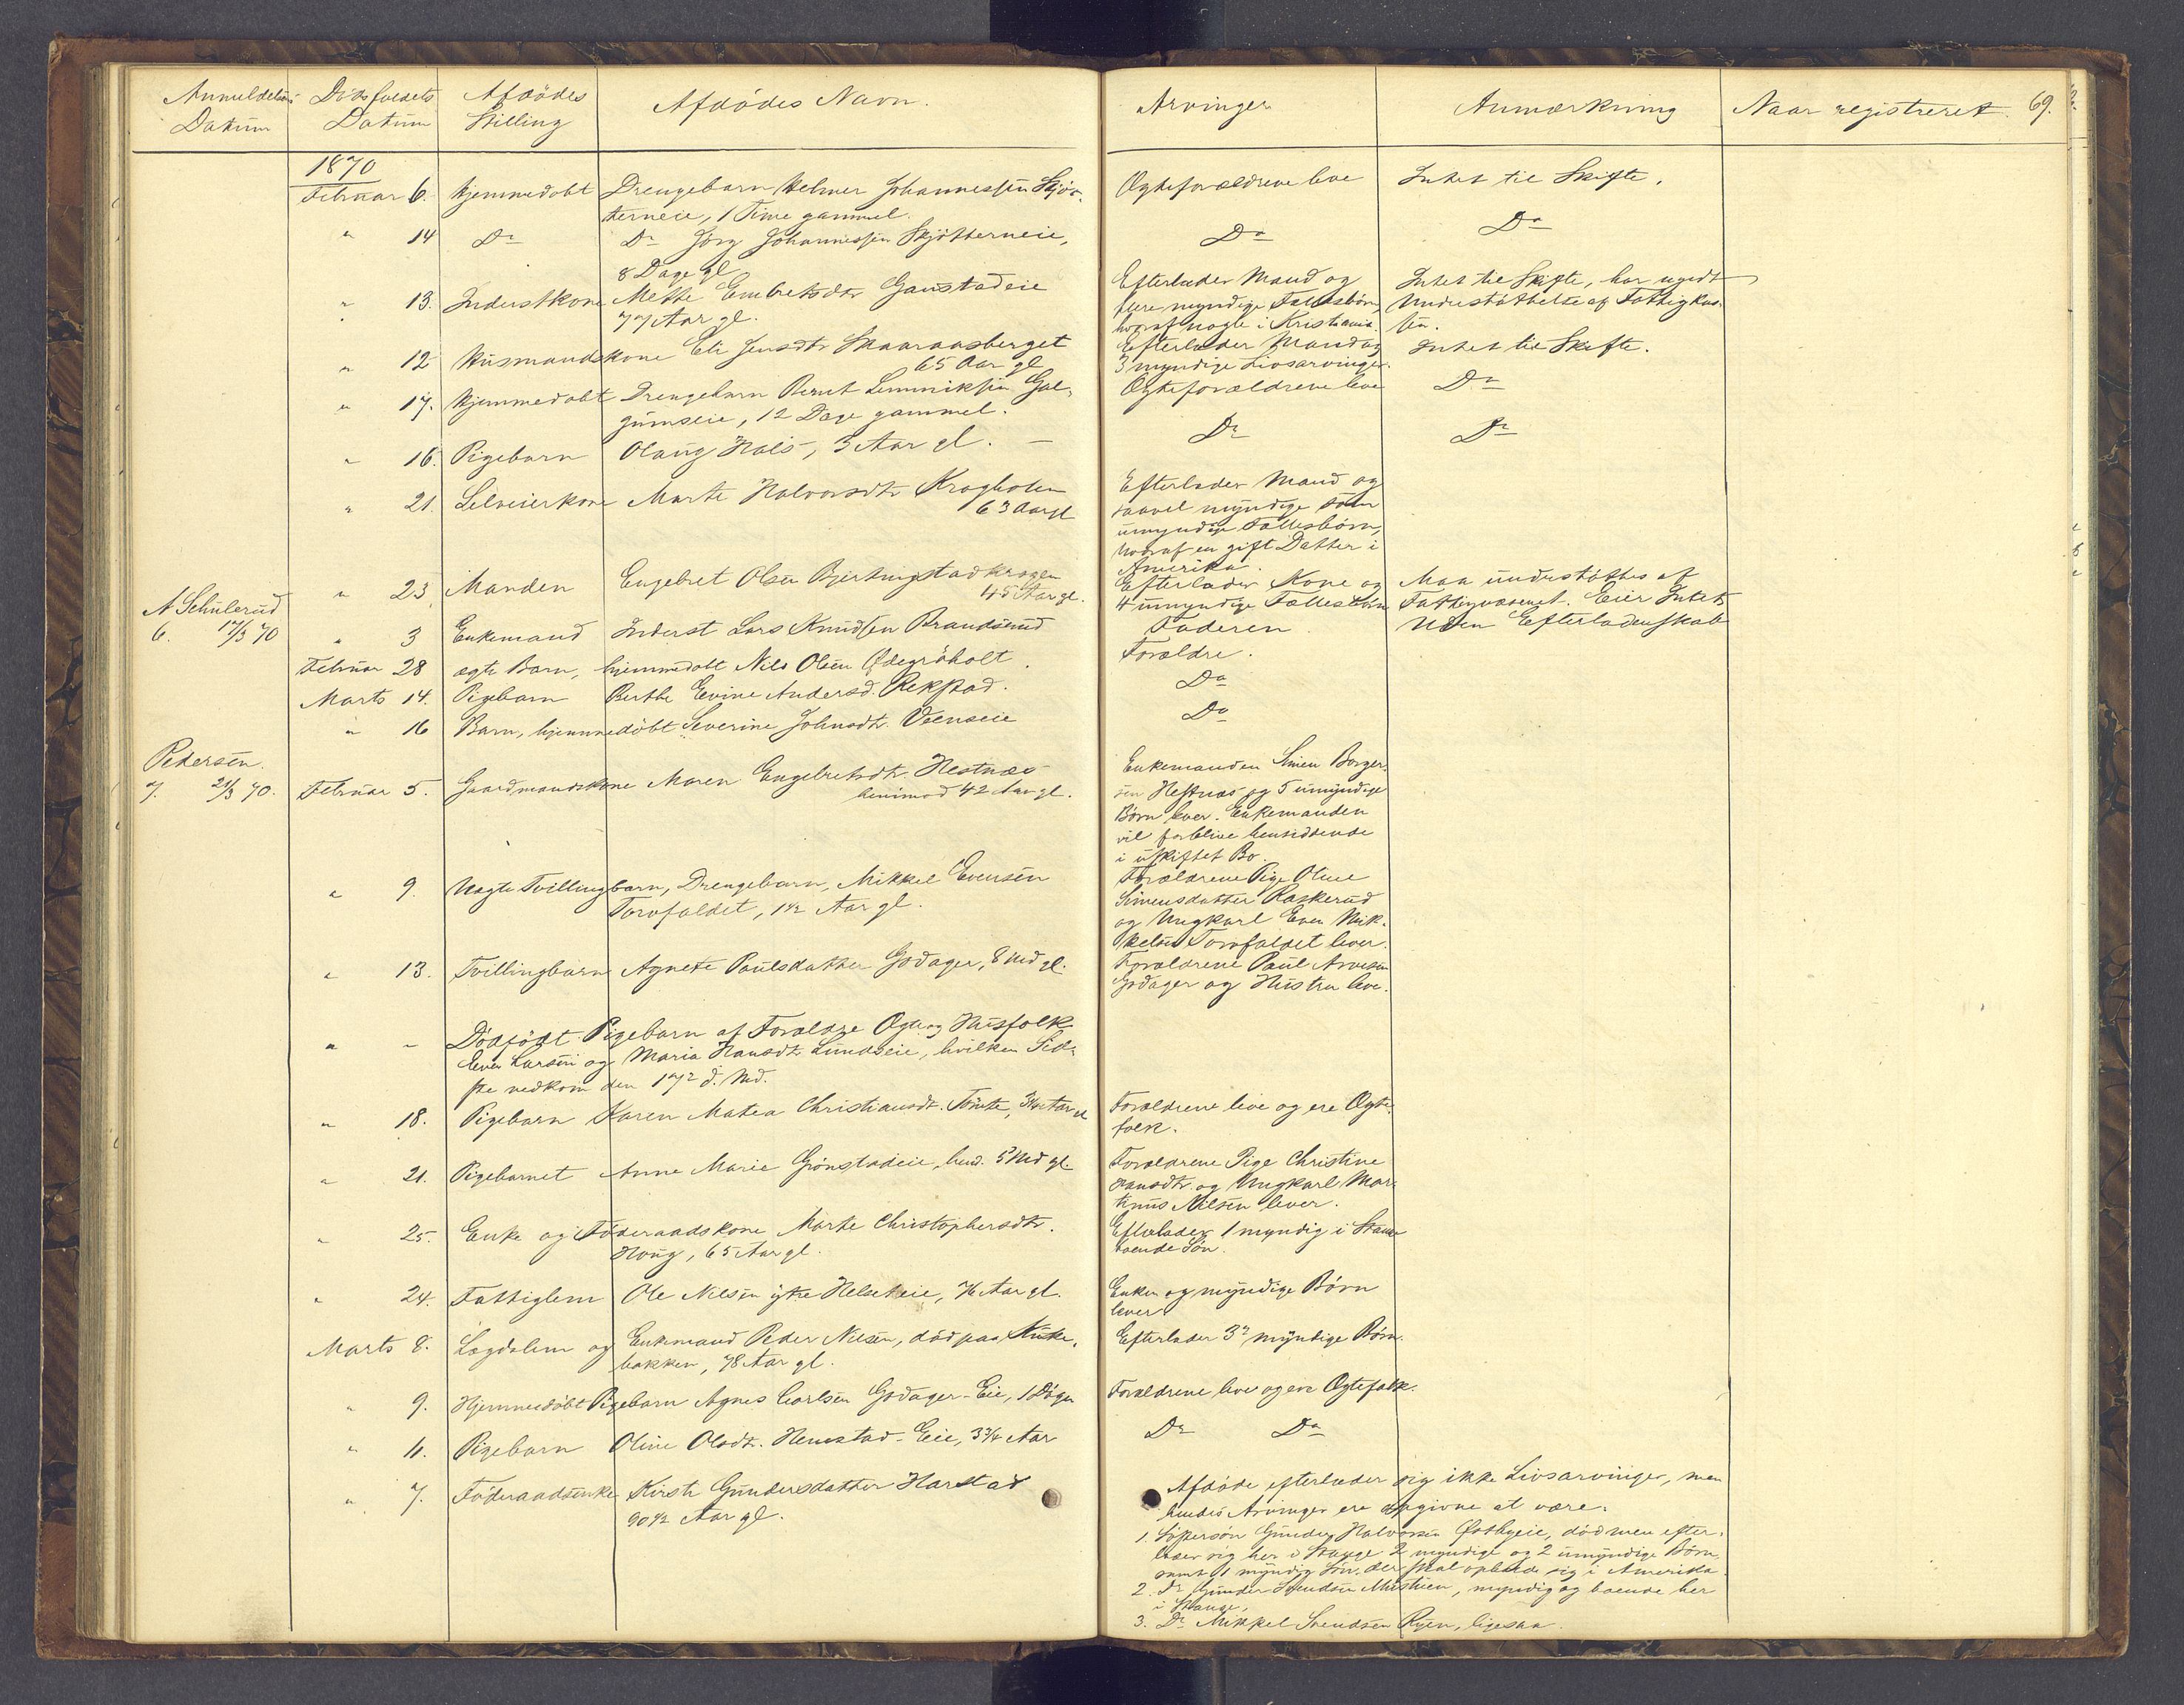 Anmeldelsens Datum
Dødsfaldets Datum
Afdødes Stilling
Afdødes Navn.
Arvinger
Anmærkning
Naar registreret.
69.
1870
Februar 6. Hjemmedøbt Drengebarn Helmer Johannessen Skjøt-
terneie, 1 Time gammel.
Ægteforældrene leve
Intet til Skifte.
" 14 Do Do Jørg Johannessen Skjøtterneie,
8 Dage gl
Do
Do
" 13. Inderstkone Mette Embretsdtr Gaustadeie
77 Aar gl.
Efterlader Mand og
flere myndige Fællesbørn,
hvoraf nogle i Kristiania.
Intet til Skifte, har nydt
Understøttelse af Fattigkas-
sen.
" 12 Husmandskone Eli Jensdtr Skaaraasberget
65 Aar gl
Efterlader Mand og
3 myndige Livsarvinger.
Intet til Skifte.
" 17. Hjemmedøbt Drengebarn Bernt Lemmiksen Gal-
gumseie, 12 Dage gammel.
Ægteforældrene leve
Do
" 16. Pigebarn Olaug Hals, 3 Aar gl. —
Do
Do
" 21. Selveierkone Marte Halvorsdtr Kragholen
63 Aar gl
Efterlader Mand og
saavel myndige som
umyndige Fællesbørn,
hvoraf en gift Datter i
Amerika.
" 23 Manden Engebret Olsen Bjertnæstadkragen
45 Aar gl.
Efterlader Kone og
4 umyndige Fællesbørn
Maa understøttes af
Fattigvæsenet. Eier Intet
A Schulerud
6. 17/3 70
" 3 Enkemand Inderst Lars Knudsen Brandserud
Faderen
Uden Efterladenskab
Februar 28 ægte Barn, hjemmedøbt Nils Olsen Ødegrøholt.
Forældre.
Marts 14. Pigebarn Berthe Evine Andersd. Rekstad.
Do
" 16 Barn, hjemmedøbt Severine Johnsdtr. Veenseie
Do
Pedersen.
7. 21/3 70.
Februar 5. Gaardmandskone Maren Engebretsdtr. Hestnæs
henimod 42 Aar gl.
Enkemanden Simen Borger-
sen Hestnæs og 5 umyndige
Børn lever. Enkemanden
vil forblive hensiddende
i uskiftet Bo.
" 9. Uægte Tvillingbarn, Drengebarn, Mikkel Evensen
Torvfaldet, 1 1/2 Aar gl.
Forældrene Pige Oline
Simensdatter Raskerud
og Ungkarl Even Mik-
kelsen Torvfaldet lever.
" 13. Tvillingbarn Agnete Paulsdatter Godager, 8 Md gl.
Forældrene Paul Arvesen
Godager og Hustru leve.
" " Dødfødt Pigebarn af Forældre Ægte og Husfolk
Even Larsen og Maria Hansdtr. Lundseie, hvilken Sid-
ste nedkom den 17de d. Md.
" 18. Pigebarn Karen Matea Christiansdt. Tomte, 3 1/2 Aar gl
Forældrene leve og ere Ægte-
folk.
" 21. Pigebarnet Anne Marie Grønstadeie, hend. 5 Md gl.
Forældrene Pige Christine
Hansdtr. og Ungkarl Mar-
thinus Nilsen lever.
" 25. Enke og Føderaadskone Marte Christophersdtr.
Houg, 65 Aar gl.
Efterlader 1 myndig i Stange
boende Søn.
" 24. Fattiglem Ole Nilsen ytre Helseteie, 76 Aar gl.
Enken og myndige Børn
lever
Marts 8. Lægdslem og Enkemand Peder Nilsen, død paa Kuke-
bakken, 78 Aar gl.
Efterlader 3de myndige Børn.
" 9. Hjemmedøbt Pigebarn Agnes Carlsen Godager-Eie, 1 Døgn
Forældrene leve og ere Ægtefolk.
" 11. Pigebarn Oline Olsdt. Hemstad-Eie, 3 3/4 Aar
Do Do
" 7. Føderaadsenke Kirsti Gundersdatter Harstad
90 1/2 Aar gl.
Afdøde efterlader sig ikke Livsarvinger, men
hendes Arvinger ere opgivne at være:
1. Søstersøn Gunder Halvorsen Østbyeie, død men efter-
lader sig her i Stange 2 myndige og 2 umyndige Børn,
samt 1 myndig Søn, der skal opholde sig i Amerika.
2. Do Gunder Svendsen Mostuen, myndig og boende her
i Stange,
3. Do Mikkel Svendsen Ryen, ligesaa